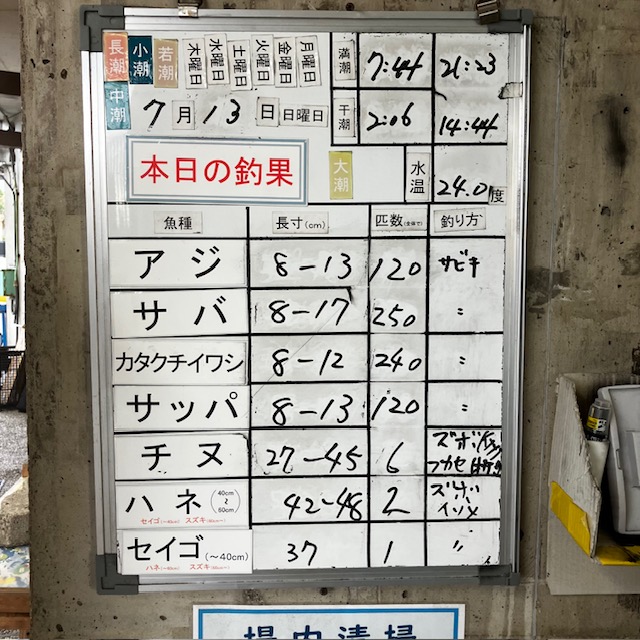 長潮 小潮 若潮 木曜日 水曜日 土曜日 火曜日 金曜日 月曜日 満潮 7:44 21:23
中潮 7月13日 日曜日 干潮 2:06 14:44
本日の釣果 大潮 水温 24.0度
魚種 長寸(cm) 匹数(全体で) 釣り方
アジ 8-13 120 サビキ
サバ 8-17 250 〃
カタクチイワシ 8-12 240 〃
サッパ 8-13 120 〃
チヌ 27~45 6 ズボ
フカセ
ハネ(40cm~60cm) 42~48 2
イソメ
セイゴ(~40cm) スズキ(60cm~)
セイゴ(~40cm) 37 1 〃
ハネ(~60cm) スズキ(60cm~)
場内清掃